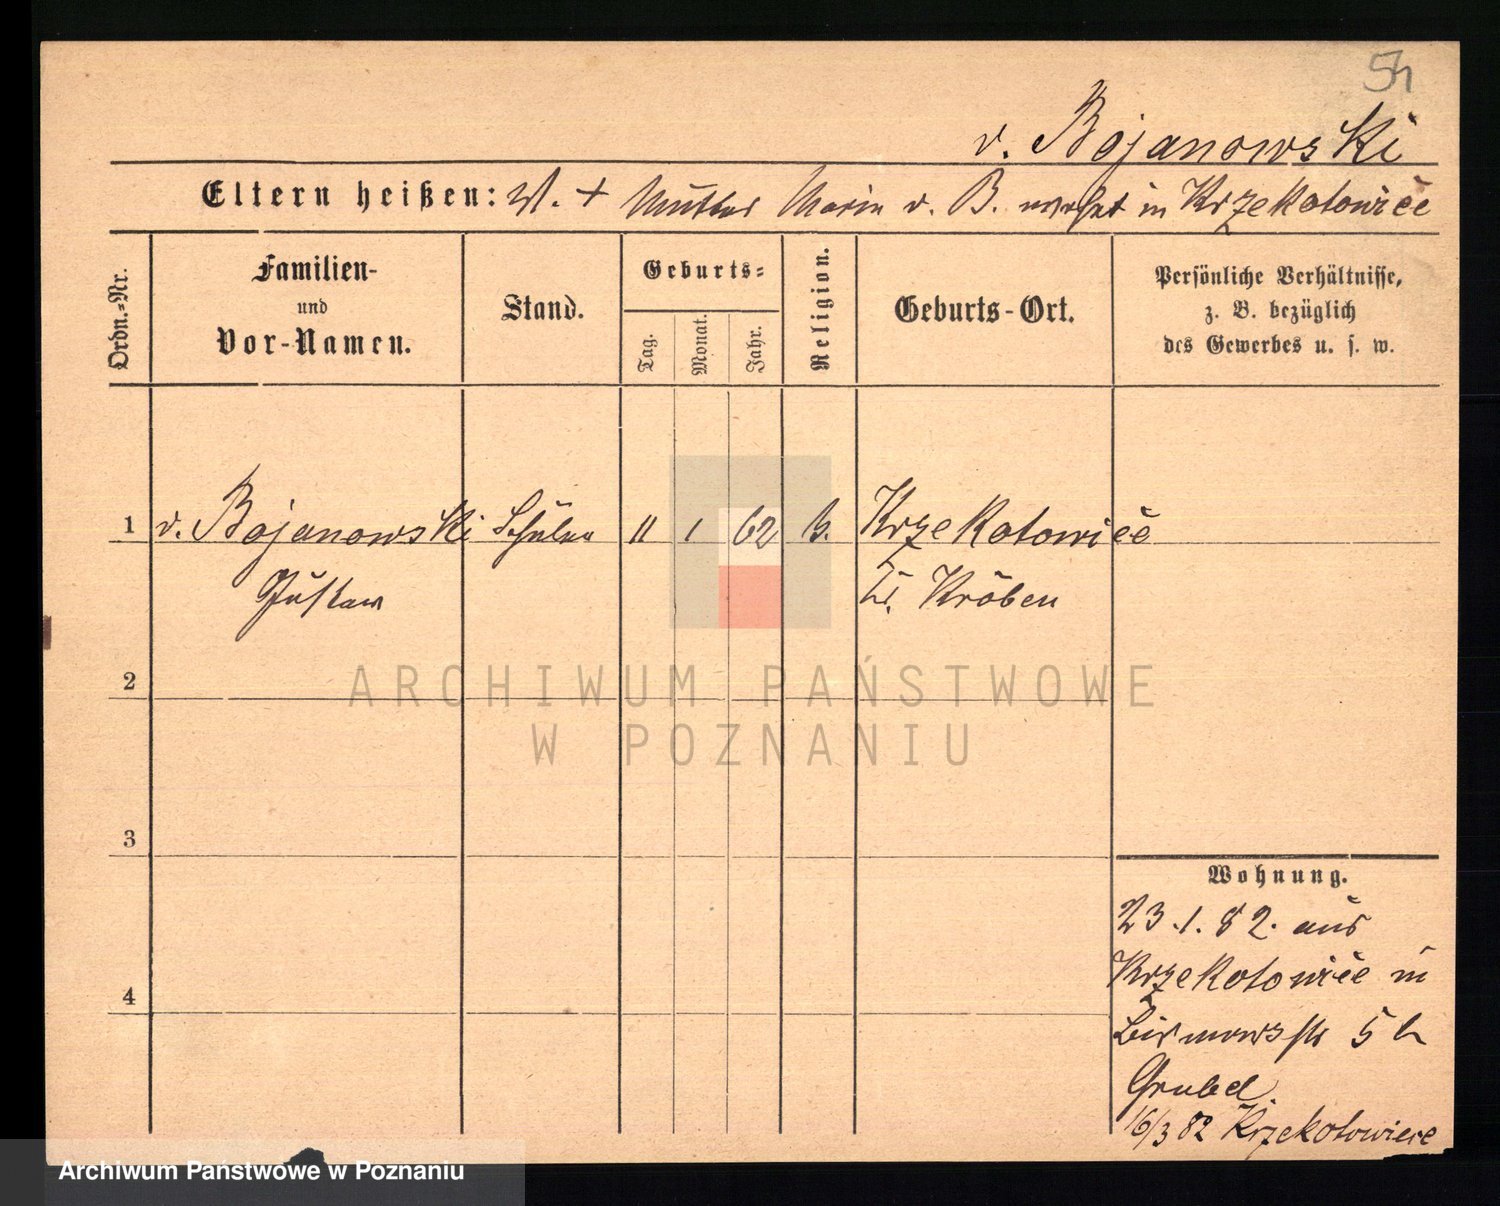 54
v. Bojanowski
Eltern heißen: V. + Mutter Marie v. B. wohnt in Krzekotowice
Ordn.-Nr.
Familien-
und
Vor-Namen.
Stand.
Geburts-
Tag.
Monat.
Jahr.
Religion.
Geburts-Ort.
Persönliche Verhältnisse,
z. B. bezüglich
des Gewerbes u. s. w.
1 v. Bojanowski Schüler 11 1 62 Krzekotowice
Gustaw
Kr. Kröben
2
3
4
Wohnung.
23.1.82. aus
Krzekotowice in
5 b
16/3 82 Krzekotowice
ARCHIWUM PAŃSTWOWE
W POZNANIU
Archiwum Państwowe w Poznaniu